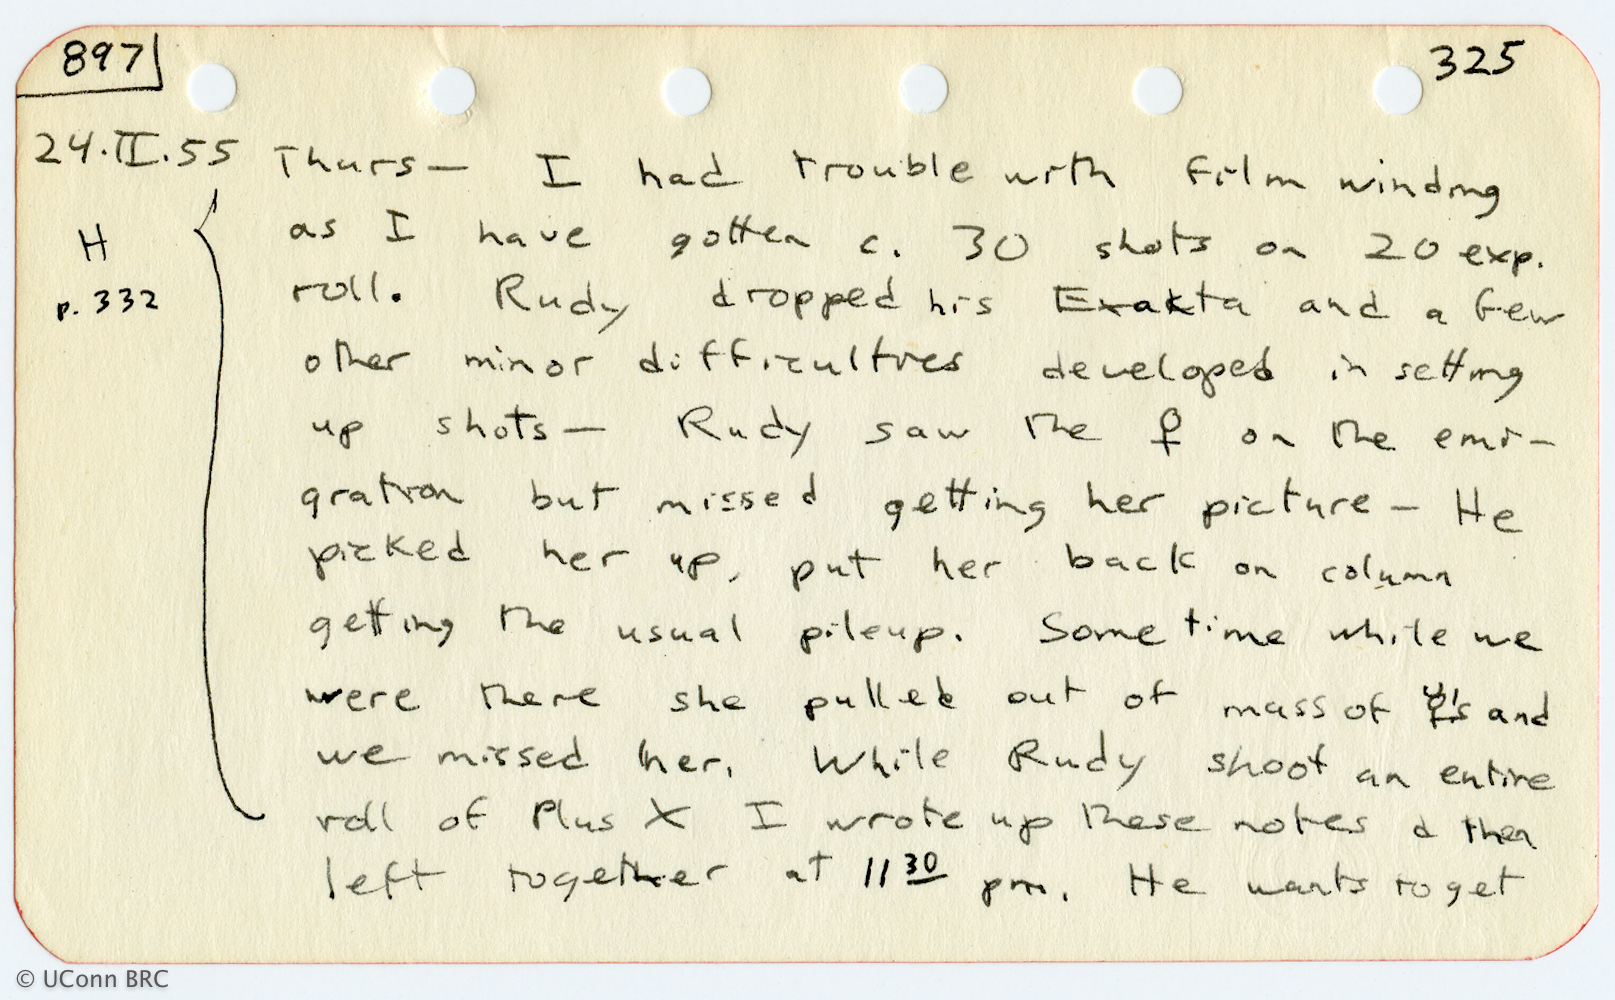 897 325
24.II.55 Thurs— I had trouble with film winding
as I have gotten c. 30 shots on 20 exp.
H
roll. Rudy dropped his Exakta and a few
p. 332
other minor difficulties developed in setting
up shots— Rudy saw the ♀ on the emi-
gration but missed getting her picture— He
picked her up, put her back on column
getting the usual pileup. Sometime while we
were there she pulled out of mass of and
we missed her. While Rudy shoot an entire
roll of Plus X I wrote up these notes & then
left together at 11 30 pm. He wants to get
© UConn BRC